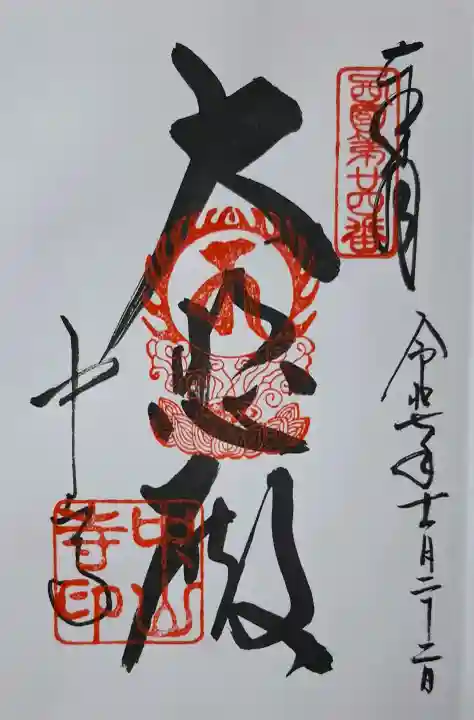 奉拝
西国第廿四番
令和七年十一月二十二日
大悲殿
中山寺
中山寺印